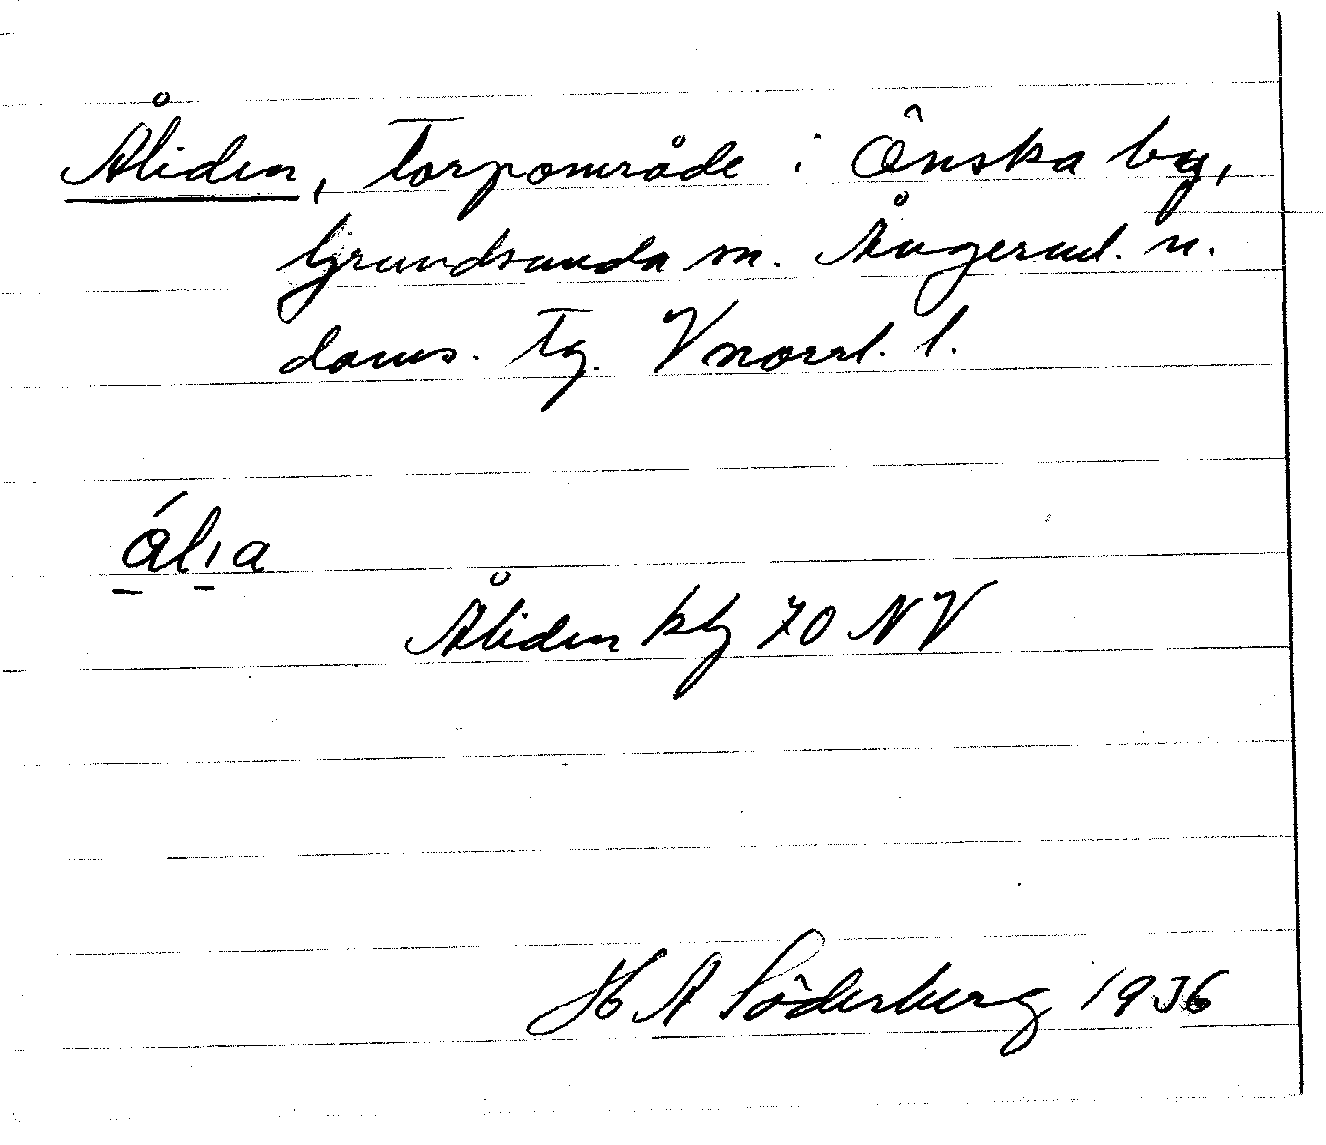 Åliden, Torpområde i Önska by,
Grundsunda sn. Ångerml. n.
doms. Tg. Vnorrl. l.
álıa
Åliden kbg 70 NV
H A Söderberg 1936